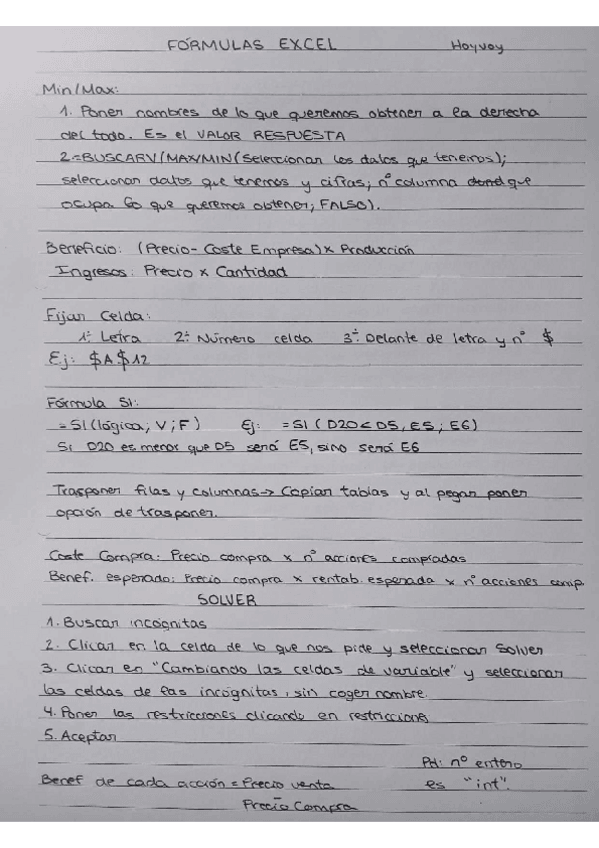 FORMULAS EXCEL
Min/Max:
1. Poner nombres de lo que queremos obtener a la derecha
del todo. Es el VALOR RESPUESTA
2.=BUSCARV(MAX/MIN(seleccionar los datos que tenemos);
seleccionar datos que tenemos y cifras; nº columna que
ocupa lo que queremos obtener; FALSO).
Beneficio: (Precio - Coste Empresa) x Producción
Ingresos: Precio x Cantidad
Fijar Celda:
1º: Letra 2º: Número celda 3º: Delante de letra y nº $
Ej: $A$12
Fórmula SI:
=SI(lógica; V; F) Ej: =SI (D20<D5, E5; E6)
Si D20 es menor que D5 será E5, sino será E6
Trasponer filas y columnas → Copiar tablas y al pegar poner
opción de trasponer.
Coste Compra: Precio compra x nº acciones compradas
Benef. esperado: Precio compra x rentab. esperada x nº acciones comp.
SOLVER
1. Buscar incógnitas
2. Clicar en la celda de lo que nos pide y seleccionar Solver
3. Clicar en "Cambiando las celdas de variable" y seleccionar
las celdas de las incógnitas, sin coger nombre.
4. Poner las restricciones clicando en restricciones
5. Aceptar
Pd: nº entero
es "int".
Benef de cada acción = Precio venta
-
Precio Compra